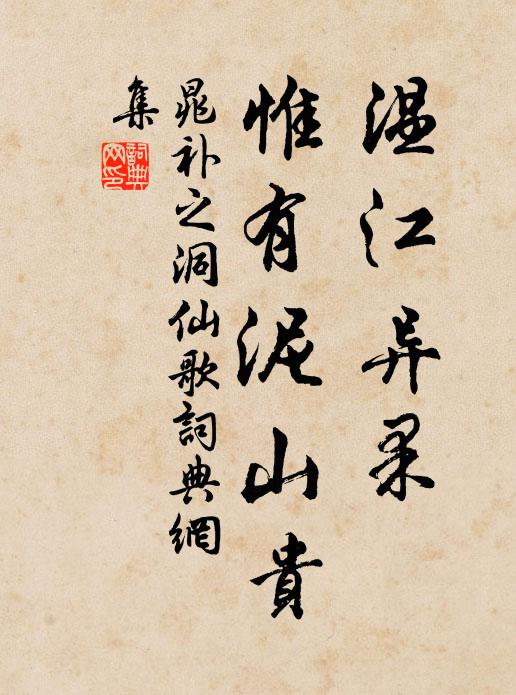 温江异果
惟有泥山貴
晁补之洞仙歌詞典網
集
詞典
网印